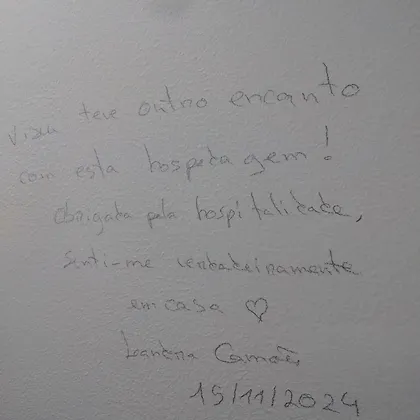 Viseu teve outro encanto
com esta hospedagem!
Obrigada pela hospitalidade,
senti-me verdadeiramente
em casa ♡
Camões
15/11/2024